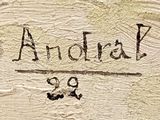 Andral
22